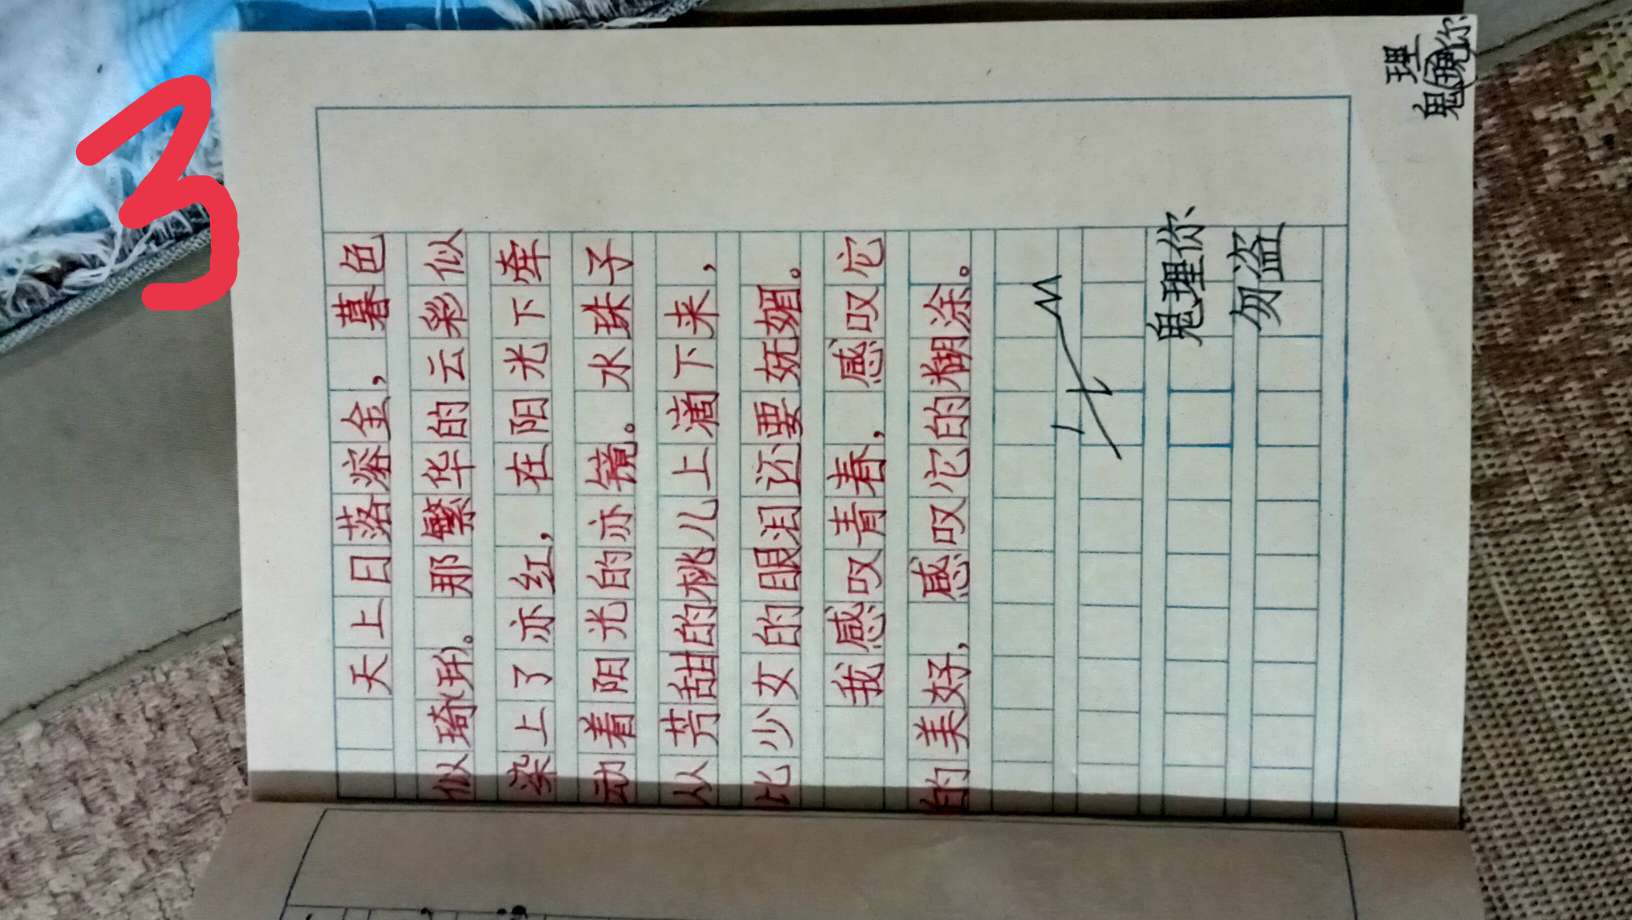 3
天上日落溶金，暮色
似琦玥。那繁华的云彩似
染上了亦红，在阳光下牵
动着阳光的亦镜。水珠子
从芳甜的桃儿上滴下来，
比少女的眼泪还要妩媚。
我感叹青春，感叹它
的美好，感叹它的糊涂。
鬼理你
勿盗
理
鬼你